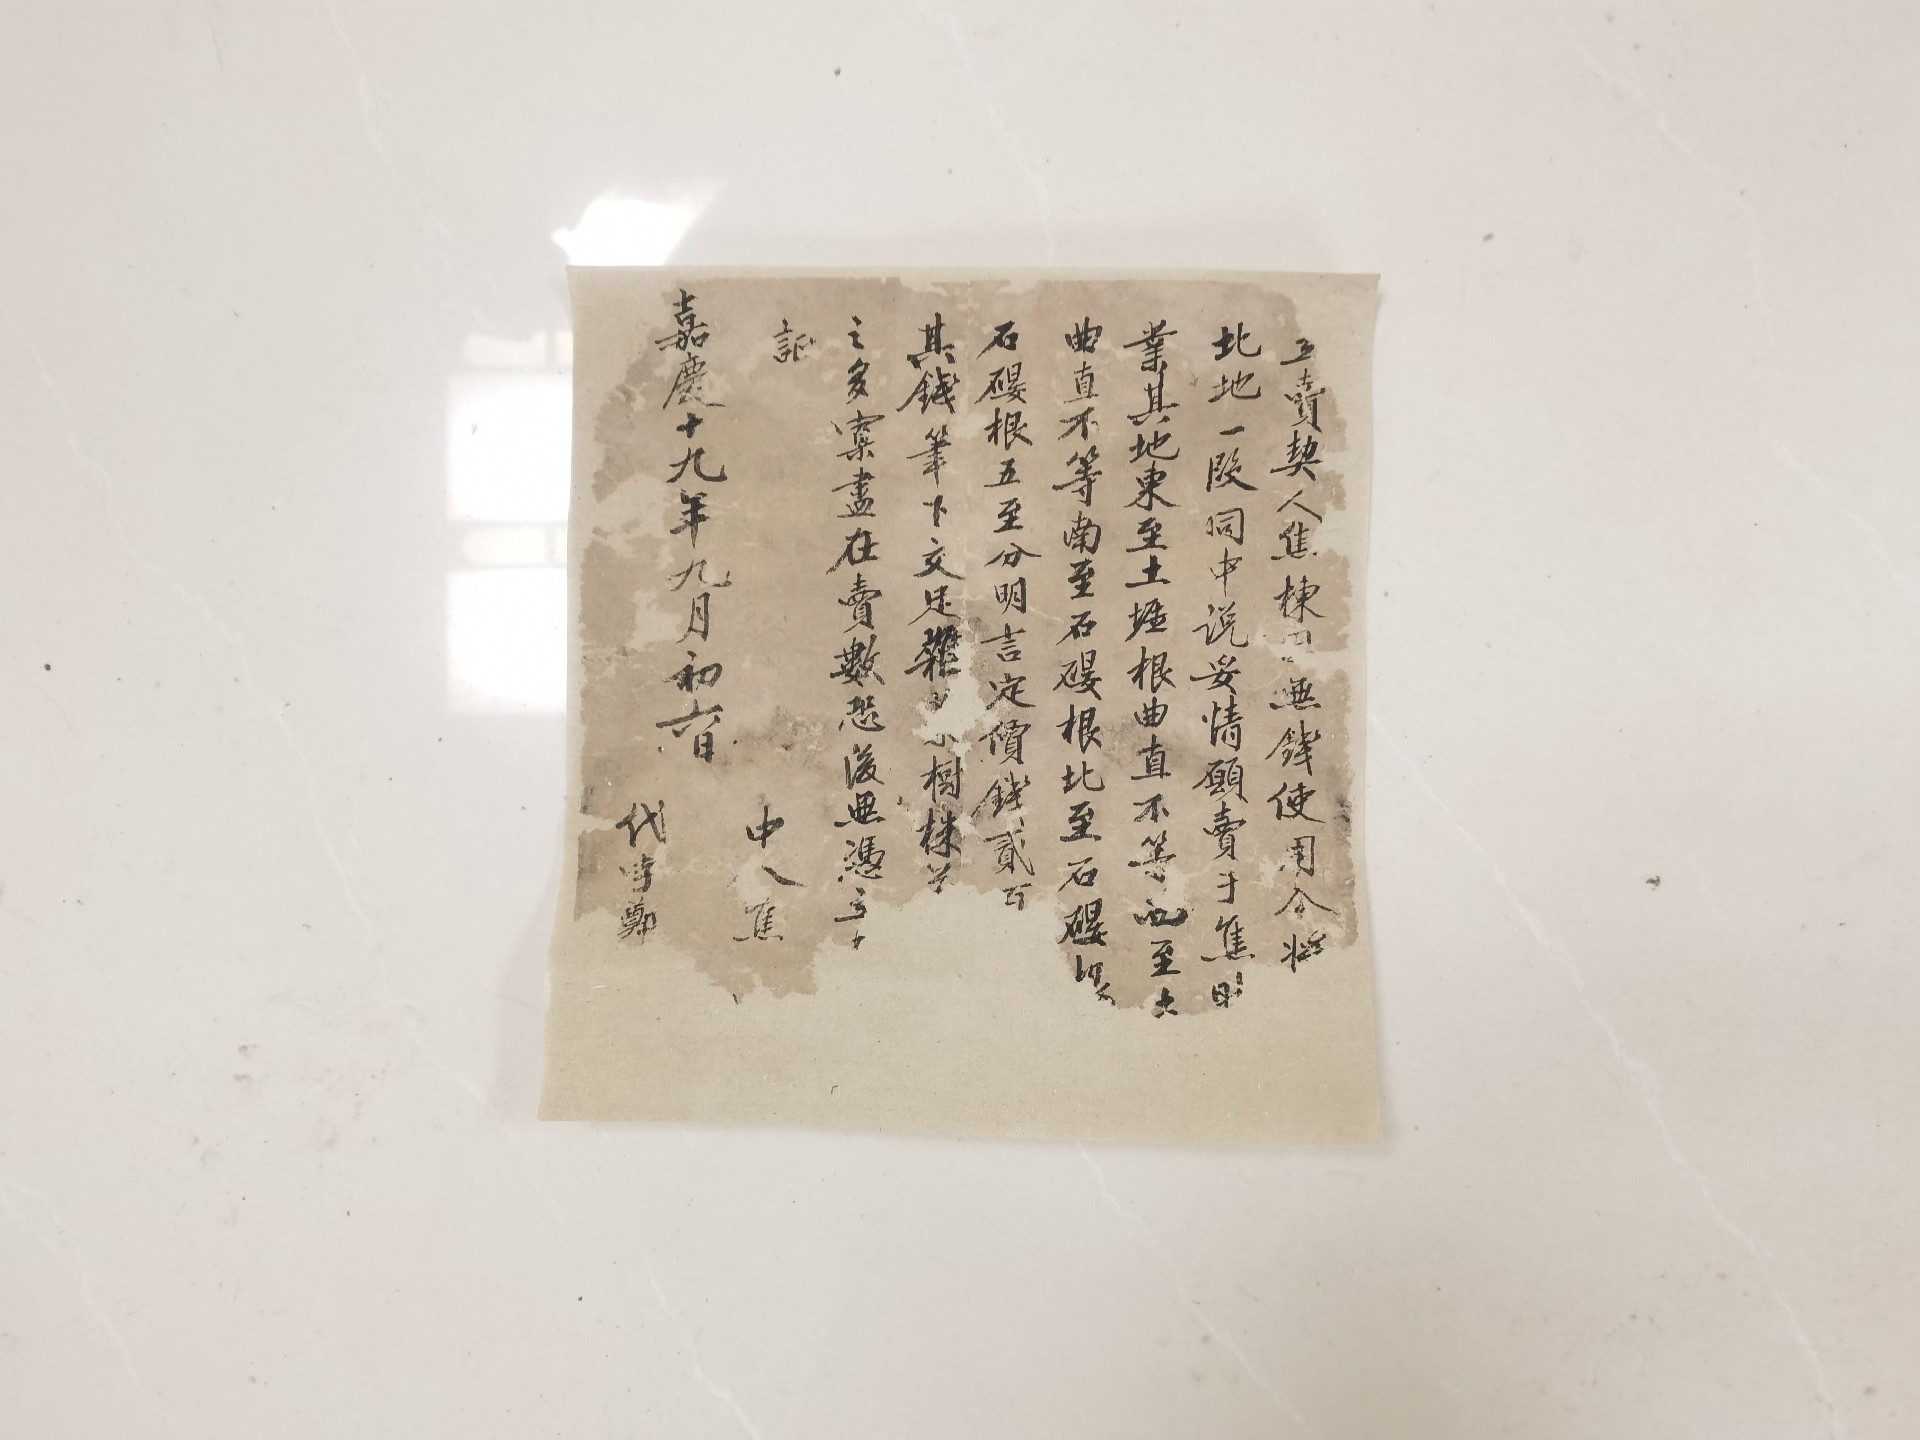 立賣契人焦棟因無錢使用今將
北地一段同中說妥情願賣于焦明
業其地東至土堰根曲直不等西至土
曲直不等南至石礘根北至石礘根
石礘根五至分明言定價錢貳百
其錢筆下交足雜 樹株
之多寡盡在賣數恐後無憑立
証
中人焦
嘉慶十九年九月初六日
代字鄭